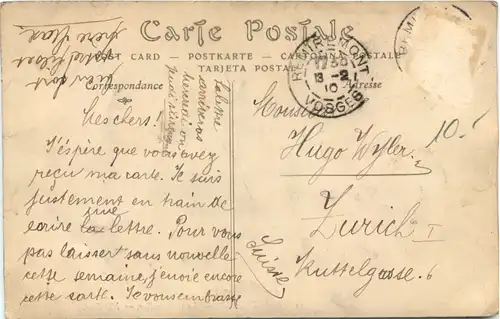 Carte Postale
POST CARD — POSTKARTE — CARTOLINA POSTALE
TARJETA POSTAL
Correspondance
Adresse
REMIREMONT
13-2
10
VOSGES
REMI
Mes chers!
J'éspère que vous avez
reçu ma carte. Je suis
justement en train de
écrire une lettre. Pour vous
pas laisser sans nouvelle
cette semaine, j'envoie encore
cette carte. Je vous embrasse
La lettre
arrivera
mercredi ou
votre
Monsieur
Hugo Wyler.
Zurich I
Kuttelgasse. 6
Suisse
10.-